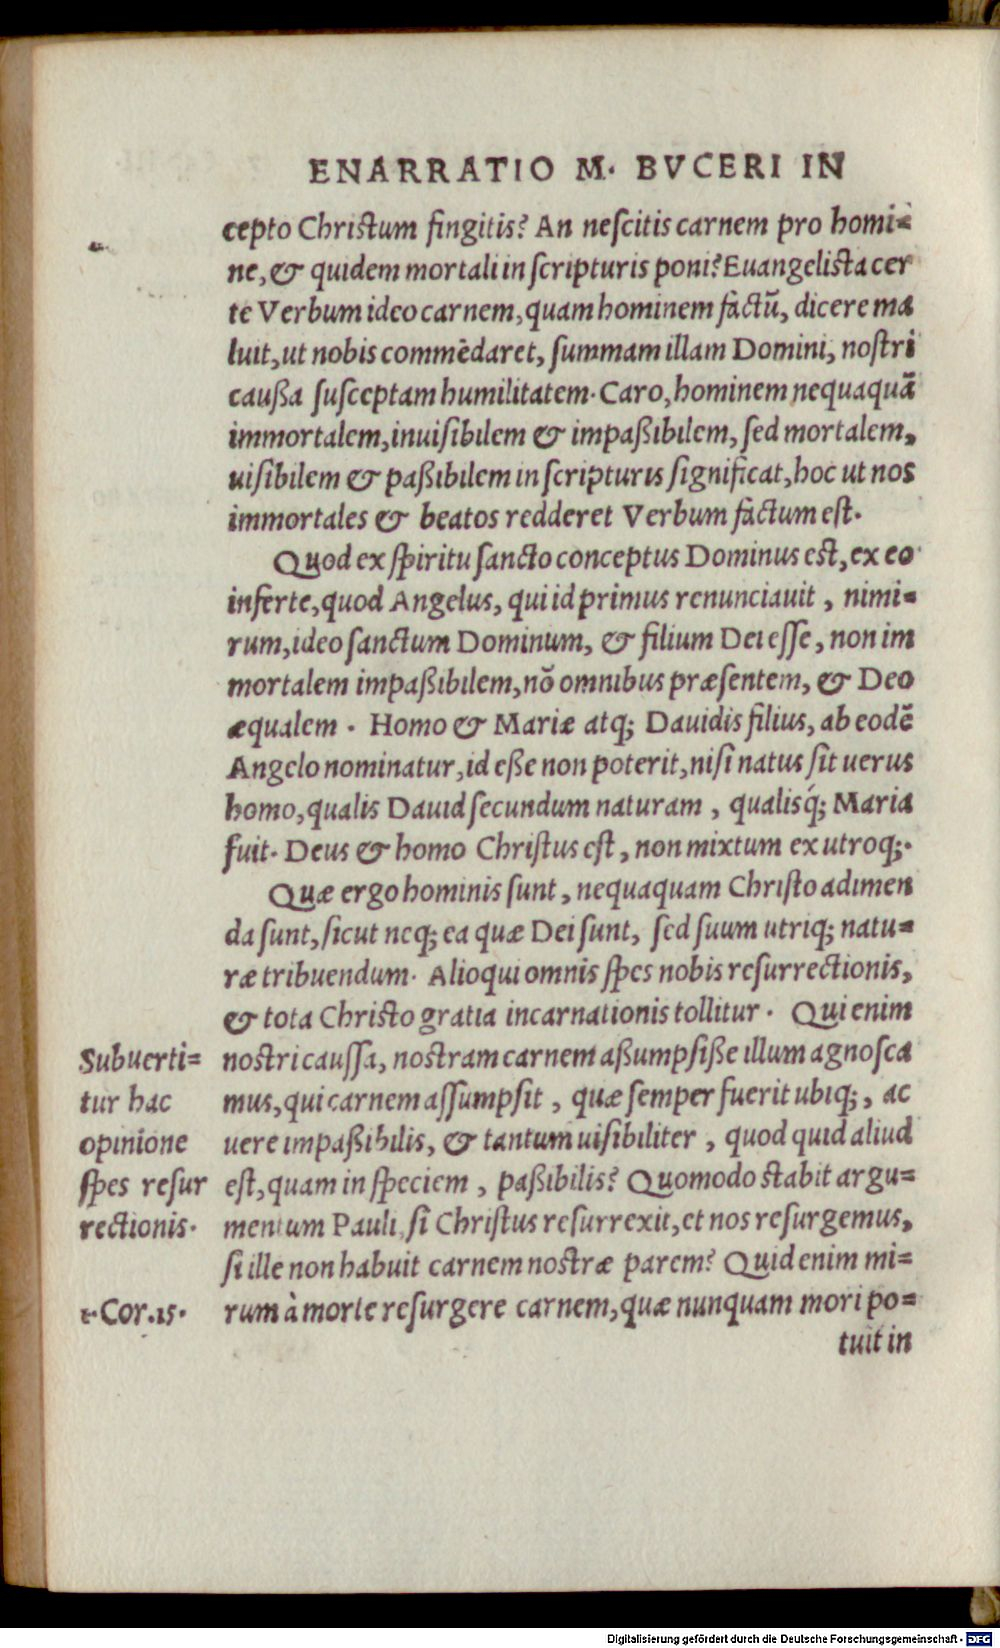 ENARRATIO M. BVCERI IN
cepto Christum fingitis? An neſcitis carnem pro homi-
ne, & quidem mortali in ſcripturis poni? Euangelista cer
te Verbum ideo carnem, quam hominem factū, dicere ma
luit, ut nobis commēdaret, ſummam illam Domini, noſtri
caußa ſuſceptam humilitatem. Caro, hominem nequaquā
immortalem, inuiſibilem & impaßibilem, ſed mortalem,
uiſibilem & paßibilem in ſcripturis ſignificat, hoc ut nos
immortales & beatos redderet Verbum factum eſt.
Quod ex ſpiritu ſancto conceptus Dominus est, ex eo
inferte, quod Angelus, qui id primus renunciauit, nimi-
rum, ideo ſanctum Dominum, & filium Dei eſſe, non im
mortalem impaßibilem, nō omnibus præſentem, & Deo
æqualem. Homo & Mariæ atq; Dauidis filius, ab eodē
Angelo nominatur, id eße non poterit, niſi natus ſit uerus
homo, qualis Dauid ſecundum naturam, qualisq́; Maria
fuit. Deus & homo Chriſtus eſt, non mixtum ex utroq;.
Quæ ergo hominis ſunt, nequaquam Chriſto adimen
da ſunt, ſicut neq; ea quæ Dei ſunt, ſed ſuum utriq; natu-
ræ tribuendum. Alioqui omnis ſpes nobis reſurrectionis,
& tota Christo gratia incarnationis tollitur. Qui enim
nostri cauſſa, nostram carnem aßumpſiße illum agnoſca
mus, qui carnem aſſumpſit, quæ ſemper fuerit ubiq;, ac
uere impaßibilis, & tantum uiſibiliter, quod quid aliud
est, quam in ſpeciem, paßibilis? Quomodo stabit argu-
mentum Pauli, ſi Chriſtus reſurrexit, et nos reſurgemus,
ſi ille non habuit carnem nostræ parem? Quid enim mi-
rum à morte reſurgere carnem, quæ nunquam mori po-
tuit in
Subuerti-
tur hac
opinione
ſpes reſur
rectionis.
1. Cor. 15.
Digitalisierung gefördert durch die Deutsche Forschungsgemeinschaft - DFG